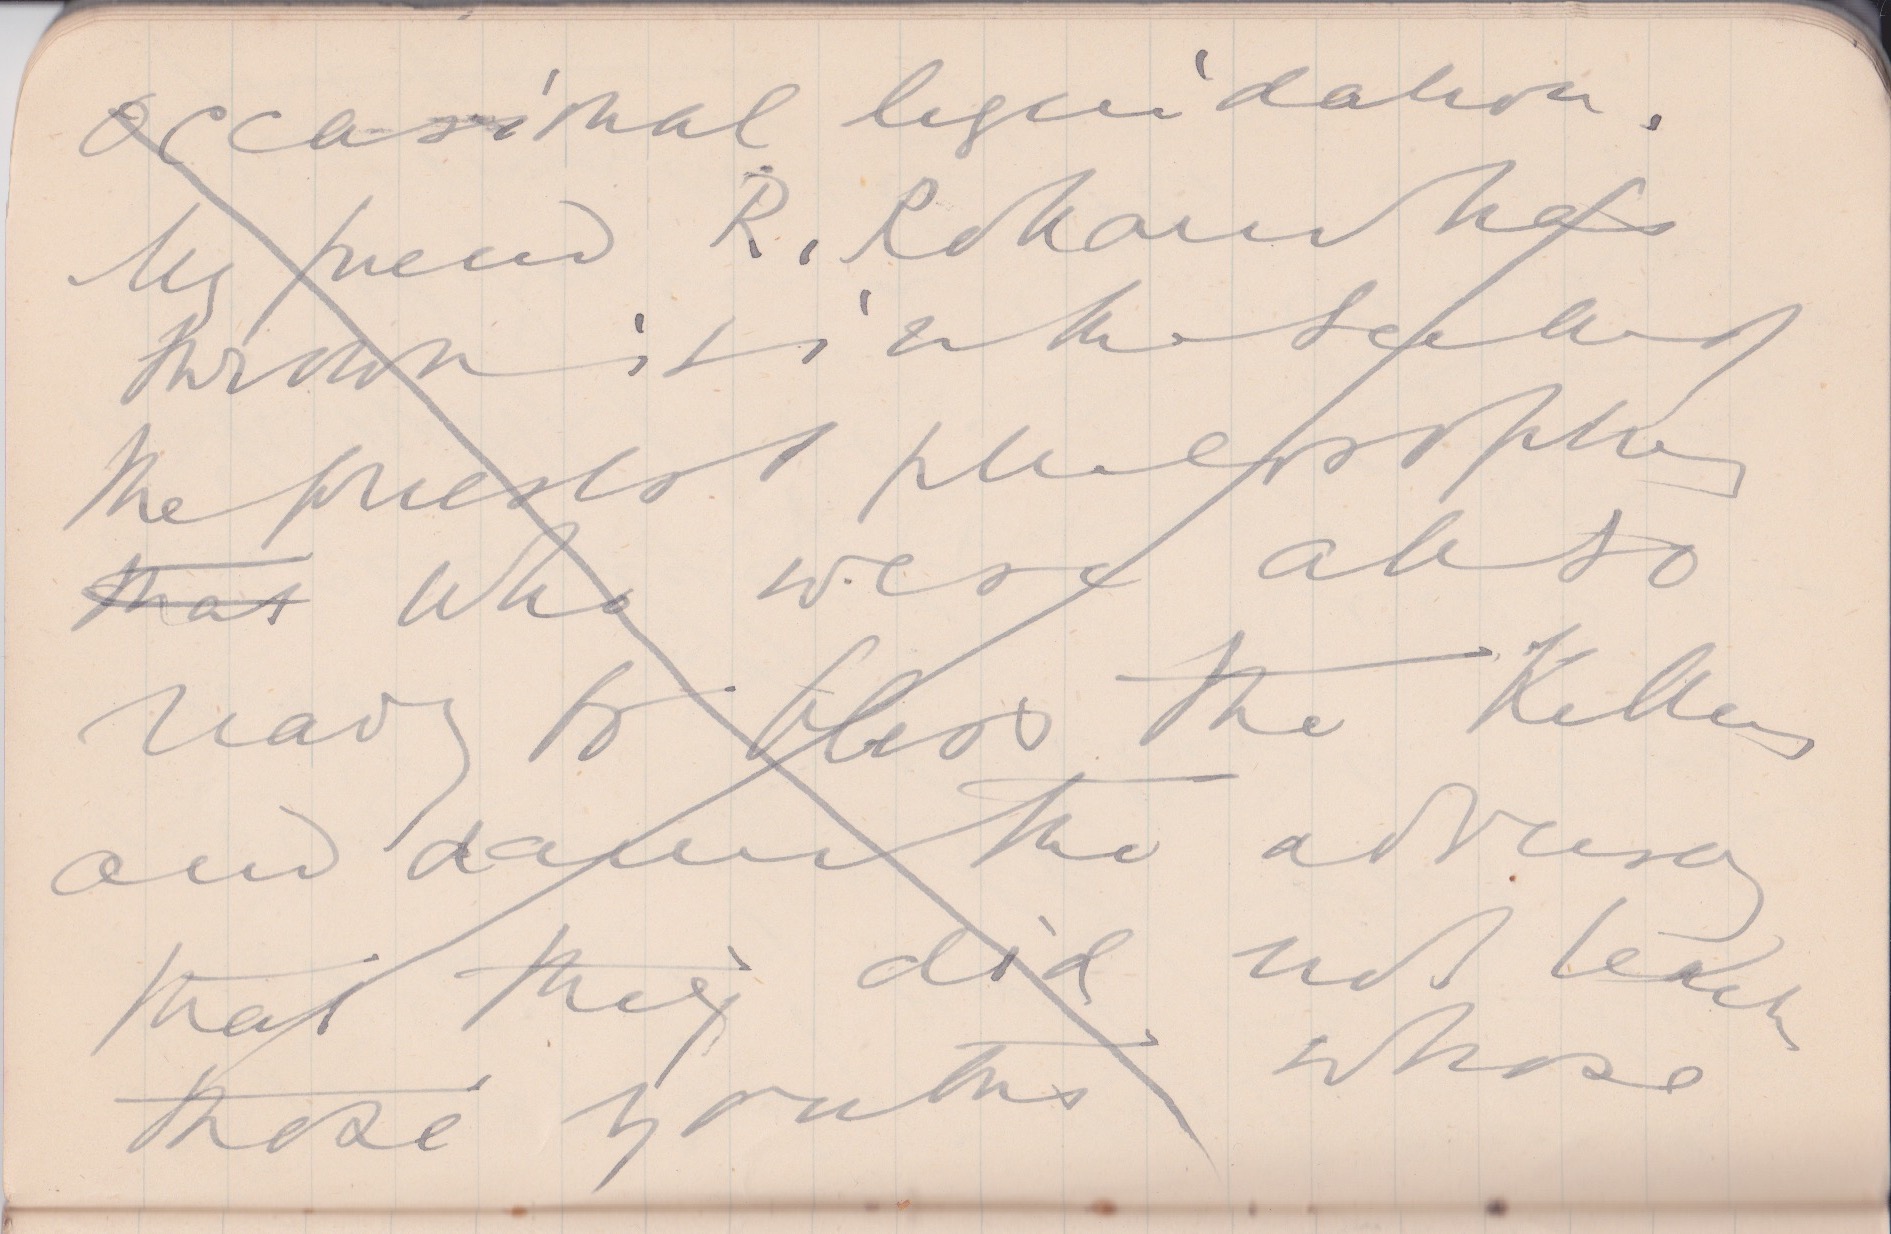 occasional liquidation.
My friend R. Rohan has
thrown it in the
the priest philosophy
that who were also
ready to bless the Killers
and damn the adversary
that they did not teach
those youths whose